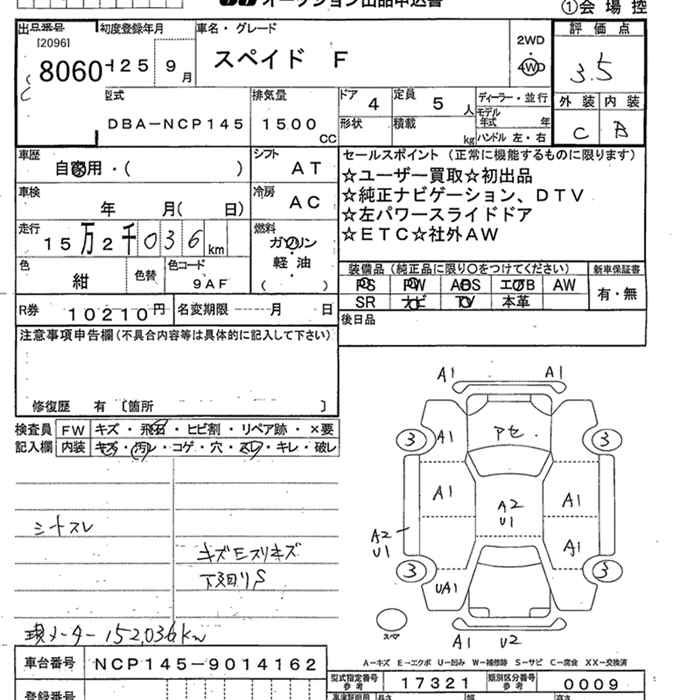 オークション出品申込書
①会場控
出品番号
[2096]
8060
初度登録年月
25 9月
車名・グレード
スペイド F
2WD
4WD
評価点
3.5
外装 内装
C B
型式
DBA-NCP145
排気量
1500cc
ドア 4
定員 5人
形状
積載 kg
ディーラー・並行
モデル年式 年
ハンドル 左・右
車歴
自家用・( )
シフト
AT
車検
年 月( 日)
冷房
AC
走行
15万2千036km
燃料
ガソリン
軽・油
( )
色
紺
色替
色カラーコード
9AF
セールスポイント(正常に機能するものに限ります)
☆ユーザー買取☆初出品
☆純正ナビゲーション、DTV
☆左パワースライドドア
☆ETC☆社外AW
装備品(純正品に限り○をつけてください)
新車保証書
PS PW ABS エアB AW
SR ナビ TV 本革
有・無
R券
10210円
名変期限 月 日
後日品
注意事項申告欄(不具合内容等は具体的に記入して下さい)
修復歴 有〔箇所 〕
検査員記入欄
FW キズ・飛石・ヒビ割・リペア跡・×要
内装 キズ・汚レ・コゲ・穴・スレ・キレ・破レ
シートスレ
キズモスリキズ
下回りS
現メーター152,036km
A1 A1
3 A1 アセ. 3
A1 A2 U1 A1
A2 U1
A1
3 UA1 3
スペア
A1 U2
A-キズ E-エクボ U-凹み W-補修跡 S-サビ C-腐食 XX-交換済
車台番号
NCP145-9014162
型式指定番号
参考
17321
類別区分番号
参考
0009
登録番号